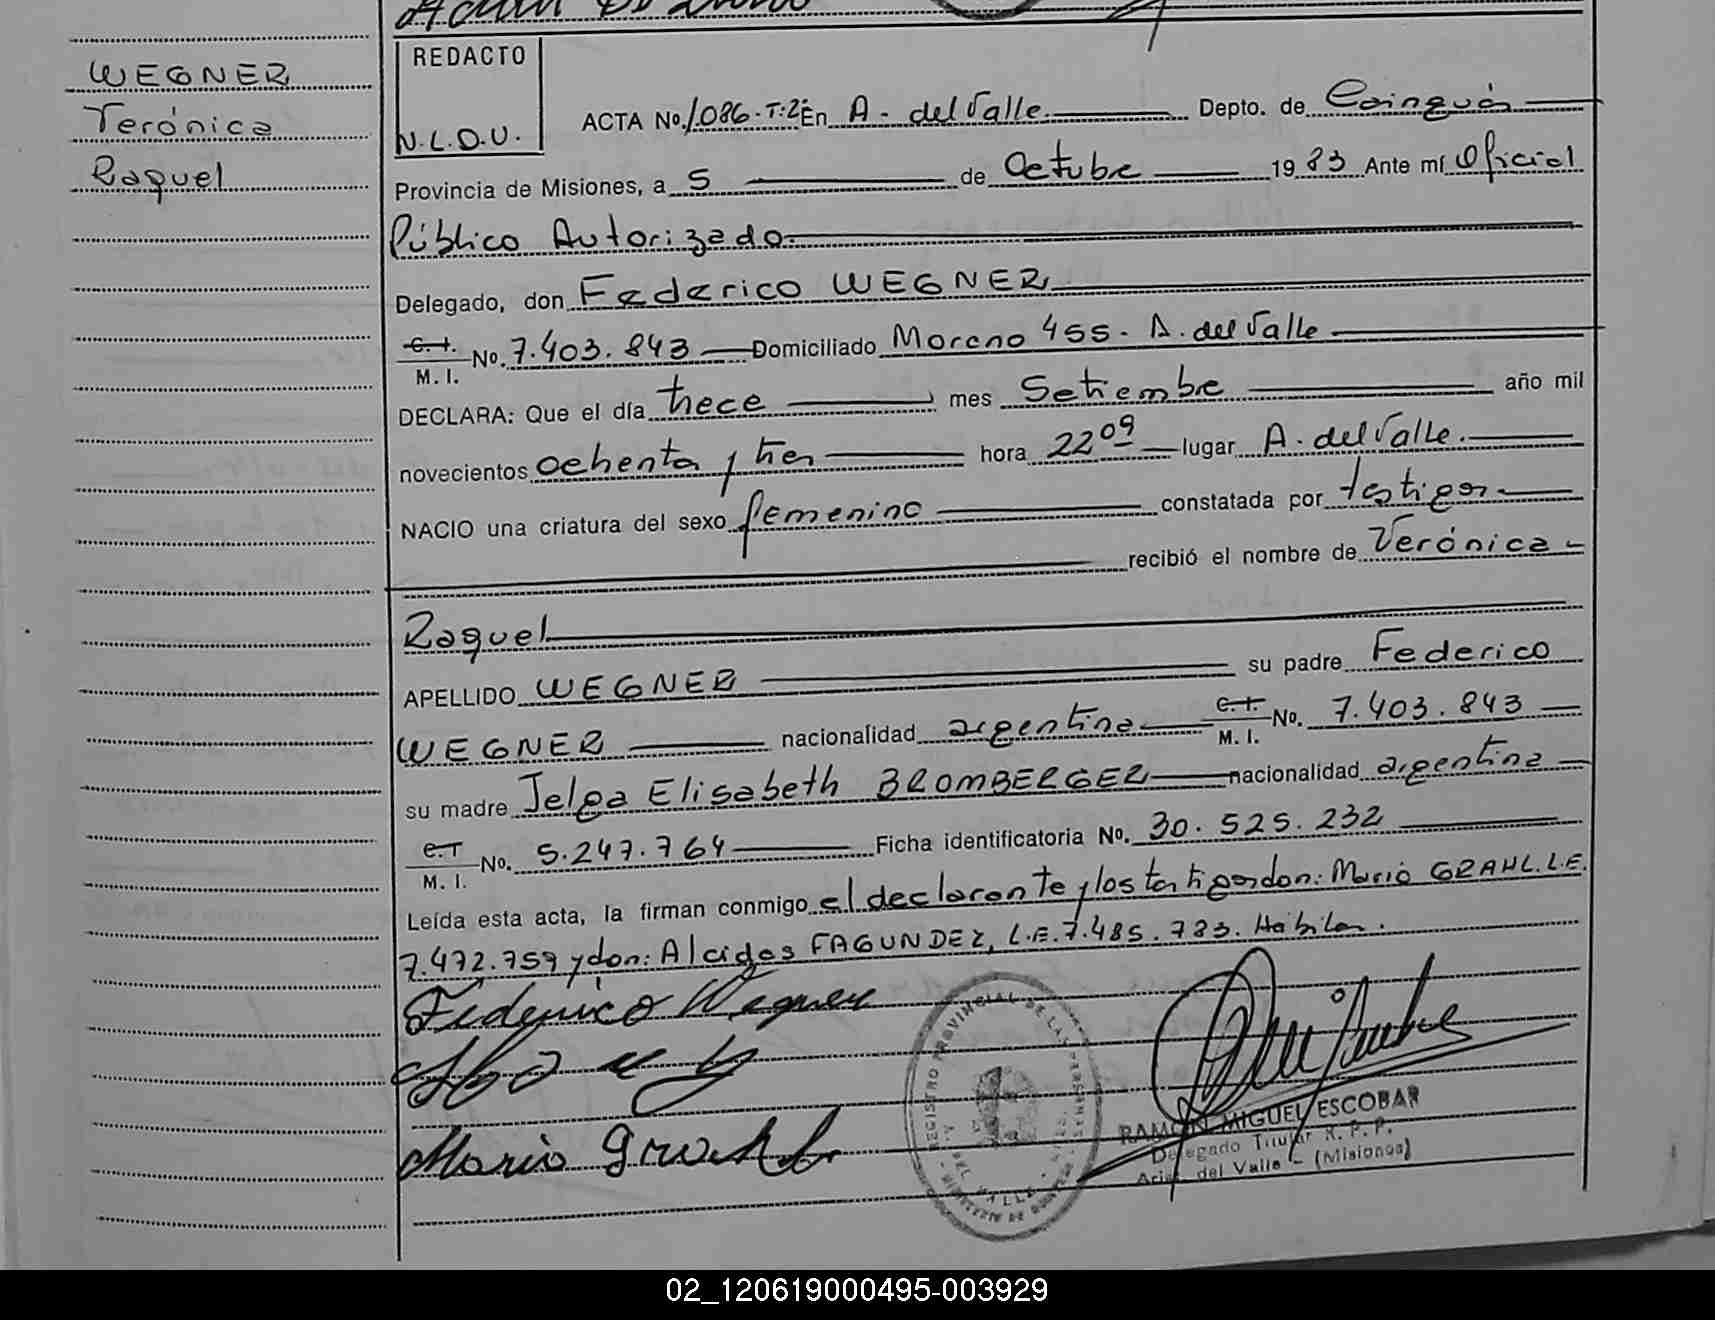 WEGNER
Verónica
Raquel
REDACTO
N.L.D.U.
ACTA No. 1.086-T:2º En A. del Valle Depto. de Cainguás
Provincia de Misiones, a 5 de Octubre 1983 Ante mí Oficial
Público Autorizado.
Delegado, don Federico WEGNER
C. I. M. I. No. 7.403.843 Domiciliado Moreno 455 - A. del Valle
DECLARA: Que el día trece mes Setiembre año mil
novecientos ochenta y tres hora 22 09 lugar A. del Valle.
NACIO una criatura del sexo femenino constatada por testigos
recibió el nombre de Verónica
Raquel
APELLIDO WEGNER su padre Federico
WEGNER nacionalidad argentina C. I. M. I. No. 7.403.843
su madre Jelga Elisabeth BROMBERGER nacionalidad argentina
C. I. M. I. No. 5.247.764 Ficha identificatoria No. 30.525.232
Leída esta acta, la firman conmigo el declarante y los testigos don: Mario GRAHL. L.E.
7.472.759 y don: Alcides FAGUNDEZ, L.E. 7.485.783. Hábiles.
Federico Wegner
Mario
REGISTRO PROVINCIAL DE LAS PERSONAS
DEL VALLE
RAMON MIGUEL ESCOBAR
Delegado Titular R. P. P.
Aris. del Valle - (Misiones)
02_120619000495-003929